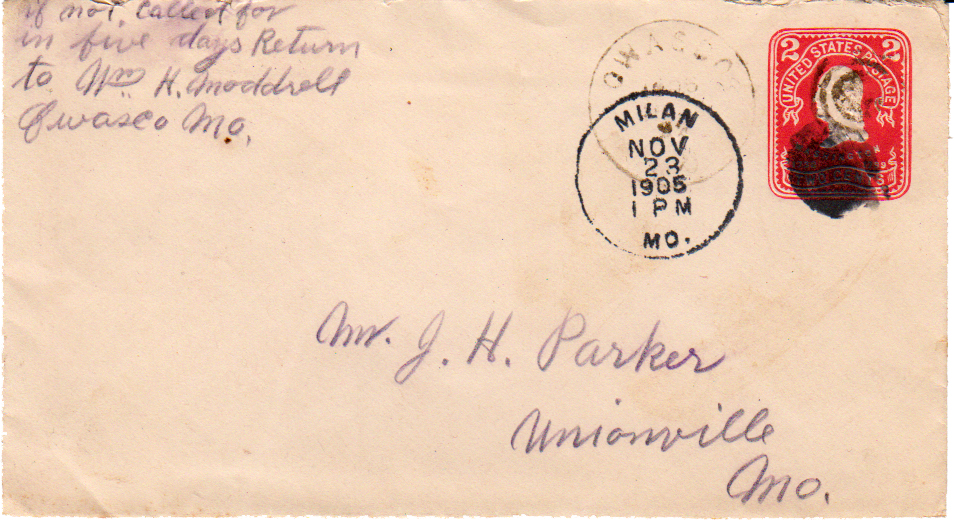 if not, called for
in five days Return
to Wm H. Moddrell
Owasco Mo.
OWASCO
MILAN
NOV
23
1905
1 PM
MO.
2 2
UNITED STATES POSTAGE
Mr. J. H. Parker
Unionville
Mo.